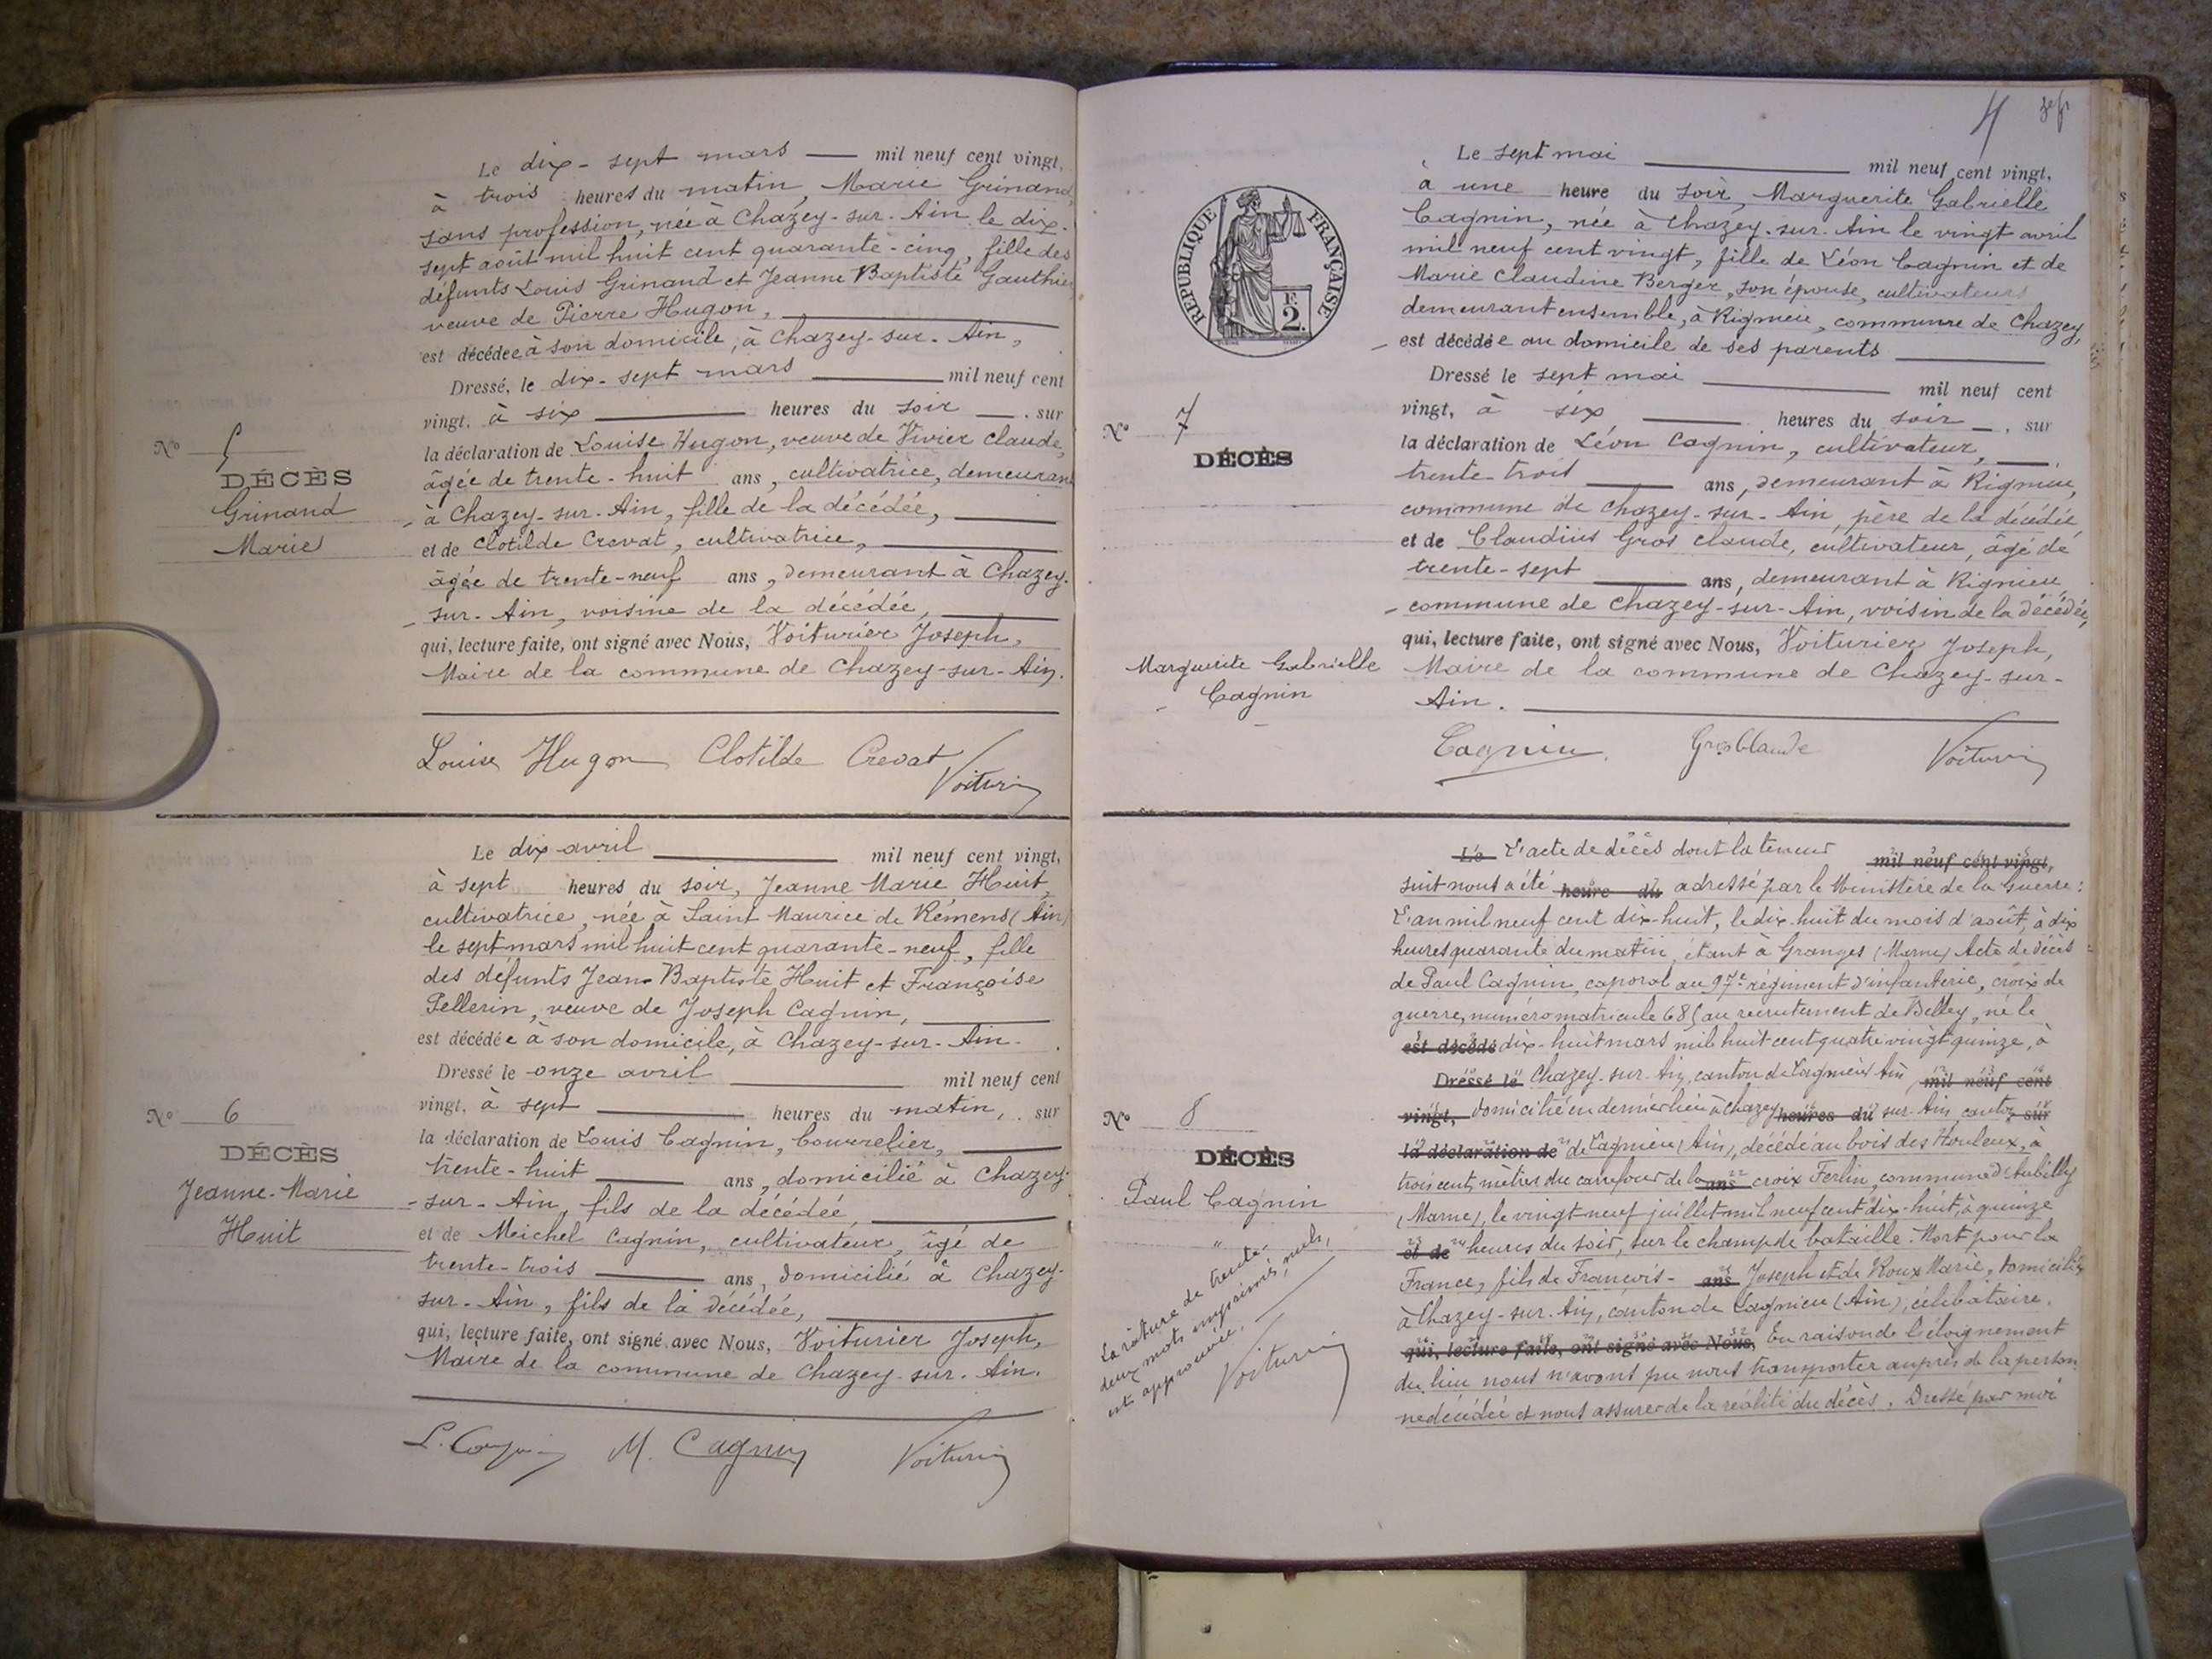 Le dix-sept mars — mil neuf cent vingt,
à trois heures du matin, Marie Grinand,
sans profession, née à Chazey-sur-Ain le dix-
sept août mil huit cent quarante-cinq, fille des
défunts Louis Grinand et Jeanne Baptiste Gauthier,
veuve de Pierre Hugon,
est décédée à son domicile, à Chazey-sur-Ain,
Dressé, le dix-sept mars — mil neuf cent
vingt, à six — heures du soir —, sur
la déclaration de Louise Hugon, veuve de Vivier Claude,
âgée de trente-huit ans, cultivatrice, demeurant
à Chazey-sur-Ain, fille de la décédée,
et de Clotilde Crevat, cultivatrice,
âgée de trente-neuf ans, demeurant à Chazey-
sur-Ain, voisine de la décédée,
qui, lecture faite, ont signé avec Nous, Voiturier Joseph,
Maire de la commune de Chazey-sur-Ain.
N° 5
DÉCÈS
Grinand
Marie
Louise Hugon Clotilde Crevat
Voiturier
Le dix avril — mil neuf cent vingt,
à sept heures du soir, Jeanne Marie Huit,
cultivatrice, née à Saint Maurice de Rémens (Ain)
le sept mars mil huit cent quarante-neuf, fille
des défunts Jean Baptiste Huit et Françoise
Pellerin, veuve de Joseph Cagnin,
est décédée à son domicile, à Chazey-sur-Ain.
Dressé le onze avril — mil neuf cent
vingt, à sept — heures du matin, sur
la déclaration de Louis Cagnin, bourrelier,
trente-huit — ans, domicilié à Chazey-
sur-Ain, fils de la décédée,
et de Meichel Cagnin, cultivateur, âgé de
trente-trois — ans, domicilié à Chazey-
sur-Ain, fils de la décédée,
qui, lecture faite, ont signé avec Nous, Voiturier Joseph,
Maire de la commune de Chazey-sur-Ain.
N° 6
DÉCÈS
Jeanne-Marie
Huit
L. Cagnin M. Cagnin Voiturier
4
RÉPUBLIQUE FRANÇAISE
F.
2.
Le sept mai — mil neuf cent vingt,
à une heure du soir, Marguerite Gabrielle
Cagnin, née à Chazey-sur-Ain le vingt avril
mil neuf cent vingt, fille de Léon Cagnin et de
Marie Claudine Berger, son épouse, cultivateurs
demeurant ensemble, à Rignieu, commune de Chazey,
est décédée au domicile de ses parents
Dressé le sept mai — mil neuf cent
vingt, à six — heures du soir —, sur
la déclaration de Léon Cagnin, cultivateur, —
trente-trois — ans, demeurant à Rignieu,
commune de Chazey-sur-Ain, père de la décédée
et de Claudius Gros Claude, cultivateur, âgé de
trente-sept — ans, demeurant à Rignieu
commune de Chazey-sur-Ain, voisin de la décédée,
qui, lecture faite, ont signé avec Nous, Voiturier Joseph,
Maire de la commune de Chazey-sur-
Ain.
N° 7
DÉCÈS
Marguerite Gabrielle
Cagnin
Cagnin Grosclaude Voiturier
Le L'acte de décès dont la teneur mil neuf cent vingt,
suit nous a été heure du adressé par le Ministère de la Guerre:
L'an mil neuf cent dix-huit, le dix-huit du mois d'août, à dix
heures quarante du matin, étant à Granges (Marne) Acte de décès
de Paul Cagnin, caporal au 97e régiment d'infanterie, croix de
guerre, numéro matricule 685 au recrutement de Belley, né le
est décédé dix-huit mars mil huit cent quatre vingt quinze, à
Dressé le Chazey-sur-Ain, canton de Lagnieu Ain, mil neuf cent
vingt, domicilié en dernier lieu à Chazey heures du sur-Ain canton sur
la déclaration de de Lagnieu (Ain), décédé au bois des Houleux, à
trois cents mètres du carrefour de la ans croix Ferlin, commune d'Aubilly
(Marne), le vingt neuf juillet mil neuf cent dix-huit, à quinze
et de heures du soir, sur le champ de bataille. Mort pour la
France, fils de François- ans Joseph et de Roux Marie, domiciliés
à Chazey-sur-Ain, canton de Lagnieu (Ain), célibataire.
qui, lecture faite, ont signé avec Nous, En raison de l'éloignement
du lieu nous n'avons pu nous transporter auprès de la person
ne décédée et nous assurer de la réalité du décès. Dressé par moi
N° 8
DÉCÈS
Paul Cagnin
"
La rature de trente-
deux mots imprimés, nuls,
est approuvée.
Voiturier